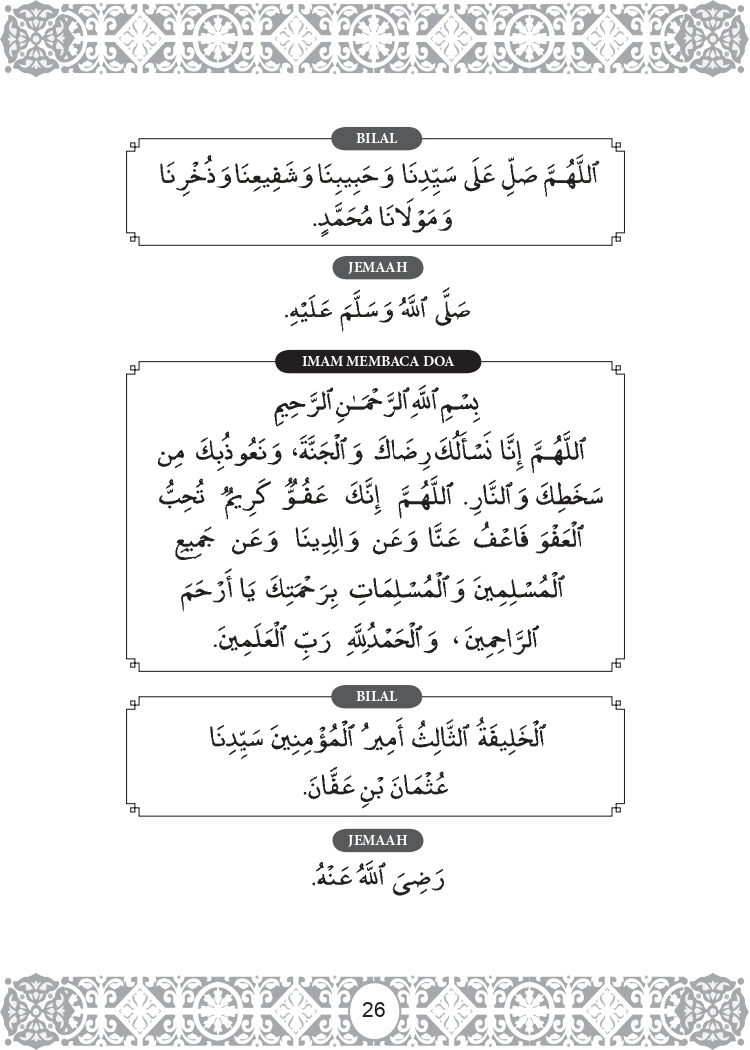 BILAL
ٱللَّهُمَّ صَلِّ عَلَى سَيِّدِنَا وَحَبِيبِنَا وَشَفِيعِنَا وَذُخْرِنَا
وَمَوْلَانَا مُحَمَّدٍ.
JEMAAH
صَلَّى ٱللَّهُ وَسَلَّمَ عَلَيْهِ.
IMAM MEMBACA DOA
بِسْمِ ٱللَّهِ ٱلرَّحْمَـٰنِ ٱلرَّحِيمِ
ٱللَّهُمَّ إِنَّا نَسْأَلُكَ رِضَاكَ وَٱلْجَنَّةَ، وَنَعُوذُبِكَ مِن
سَخَطِكَ وَٱلنَّارِ. ٱللَّهُمَّ إِنَّكَ عَفُوٌّ كَرِيمٌ تُحِبُّ
ٱلْعَفْوَ فَاعْفُ عَنَّا وَعَن وَالِدِينَا وَعَن جَمِيعِ
ٱلْمُسْلِمِينَ وَٱلْمُسْلِمَاتِ بِرَحْمَتِكَ يَا أَرْحَمَ
ٱلرَّاحِمِينَ، وَٱلْحَمْدُلِلَّهِ رَبِّ ٱلْعَلَمِينَ.
BILAL
ٱلْخَلِيفَةُ ٱلثَّالِثُ أَمِيرُ ٱلْمُؤْمِنِينَ سَيِّدِنَا
عُثْمَانَ بْنِ عَفَّانَ.
JEMAAH
رَضِىَ ٱللَّهُ عَنْهُ.
26